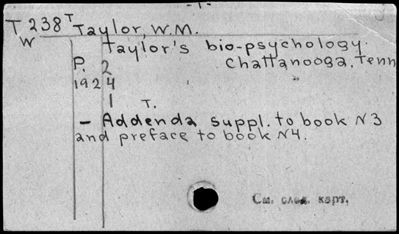 - 1 -
T 238 T Taylor, W.M.
W Taylor's bio-psychology.
P. 2 Chattanooga, Tenn
192 4
1 T.
- Addenda suppl. to book N3
and preface to book N4.
См. след. карт.